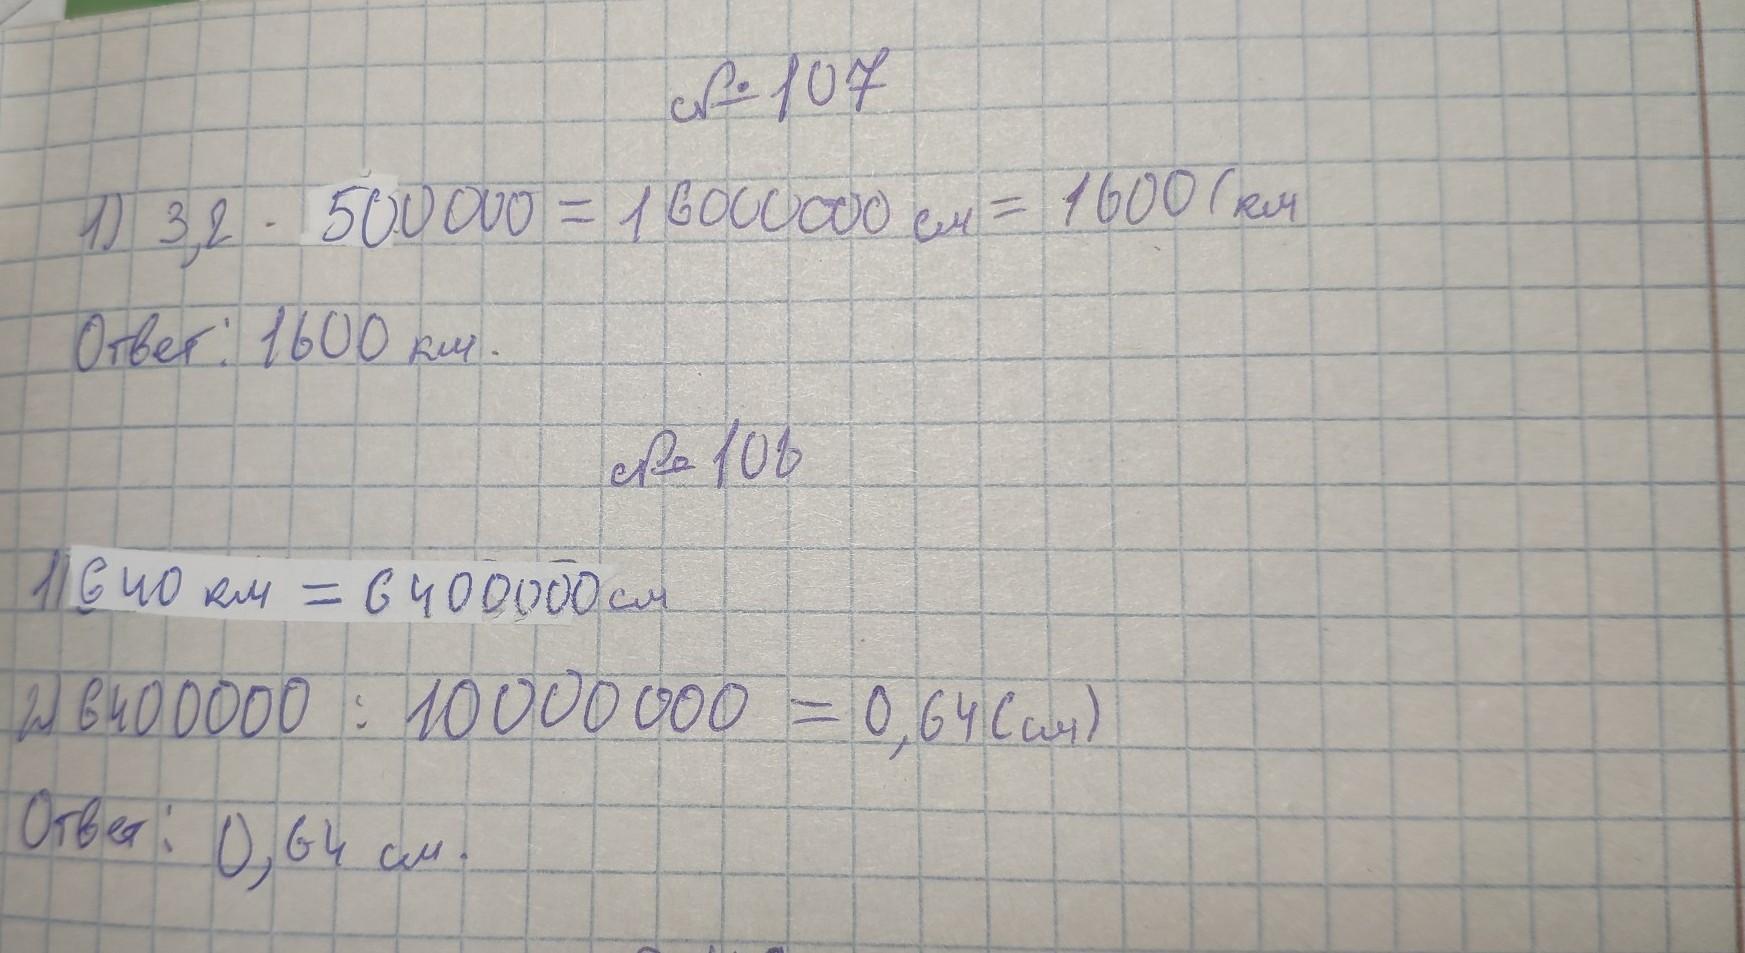 № 107
1) 3,2 · 500000 = 16000000 см = 1600 (км
Ответ: 1600 км.
№ 106
1) 640 км = 6400000 см
2) 6400000 : 10000000 = 0,64 (см)
Ответ: 0,64 см.